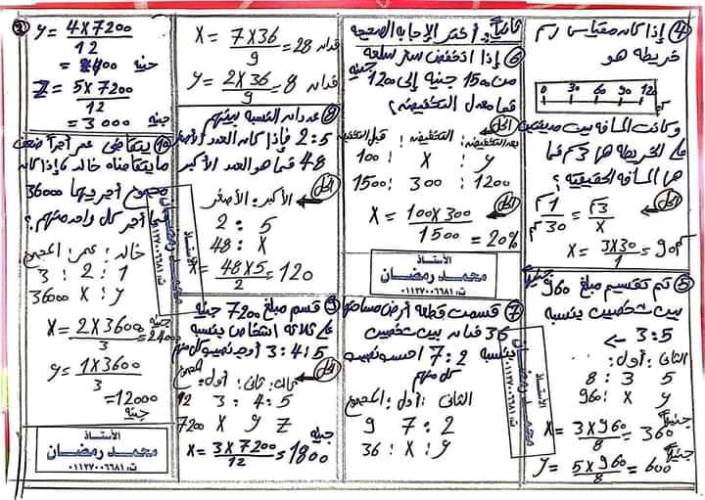 ④ إذا كان مقياس رسم
خريطة هو
0 30 60 90 120
وكانت المسافة بين مدينتين
على الخريطة ها 3سم فما
ها المسافة الحقيقية؟
الحل
1سم / 30م = 3سم / x
x = 3X30 / 1 = 90م
⑤ تم تقسيم مبلغ 960 جنيه
بين شخصين بنسبة
3:5
الثانى : أول :
8 : 3 5
960: x y
x = 3 x 960 / 8 = 360 جنيهاً
y = 5 x 960 / 8 = 600 جنيهاً
ثانياً، أختر الإجابة الصحيحة
⑥ إذا انخفض سعر سلعة
من 1500 جنيه إلى 1200 جنيه
فما معدل التخفيض؟
الحل
قبل التخفيض : التخفيض : بعد التخفيض
100 : x : y
1500 : 300 : 1200
الحل
x = 100 x 300 / 1500 = 20%
الأستاذ
محمد رمضان
ت: ٠١١٢٧٠٠٦٦٨١
⑦ قسمت قطعة أرض مساحتها
36 فدان بين شخصين
بنسبة 7:2 احسب نصيب
كل منهم
الثانى : أول : المجموع
9 7 : 2
36 : x : y
x = 7 x 36 / 9 = 28 فدان
y = 2 x 36 / 9 = 8 فدان
⑧ عددان النسبة بينهم
2:5 فإذا كان العدد الأصغر
48 فما هو العدد الأكبر
الحل
الأكبر : الأصغر
2 : 5
48 : x
x = 48 x 5 / 2 = 120
⑨ قسم مبلغ 7200 جنيه
على ثلاثة اشخاص بنسبة
3:4:5 أوجد نصيب كل منهم
الحل
ثالث : ثانى : أول : المجموع
12 3 : 4 : 5
7200 x y z
x = 3 x 7200 / 12 = 1800 جنيه
y = 4 x 7200 / 12
= 2400 جنيه
z = 5 x 7200 / 12
= 3000 جنيه
⑩ يتقاضى عمر أجراً ضعف
ما يتقاضاه خالد، إذا كان
مجموع أجريهما 36000
فما أجر كل واحد منهم؟
خالد : عمر : المجموع
3 : 2 : 1
36000 x : y
x = 2 x 3600 / 3 = 2400 جنيه
y = 1 x 3600 / 3
= 12000
جنيه
الأستاذ
محمد رمضان
ت: ٠١١٢٧٠٠٦٦٨١